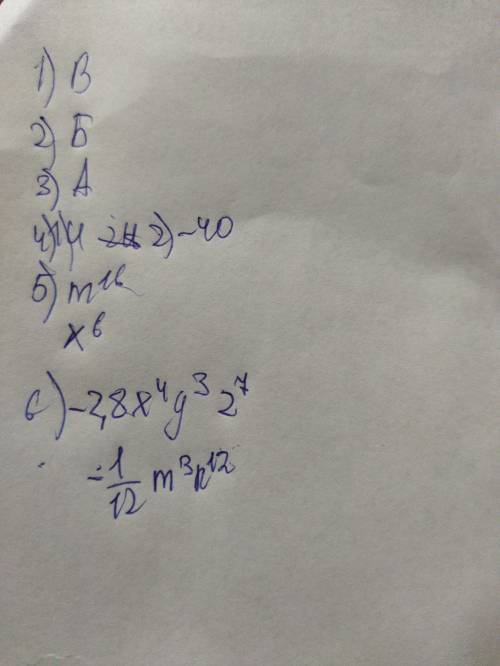 1) В
2) Б
3) А
4) 1) 4 2) -40
5) m¹⁶
x⁶
6) -2,8x⁴y³z⁷
-1/12 m³n¹²